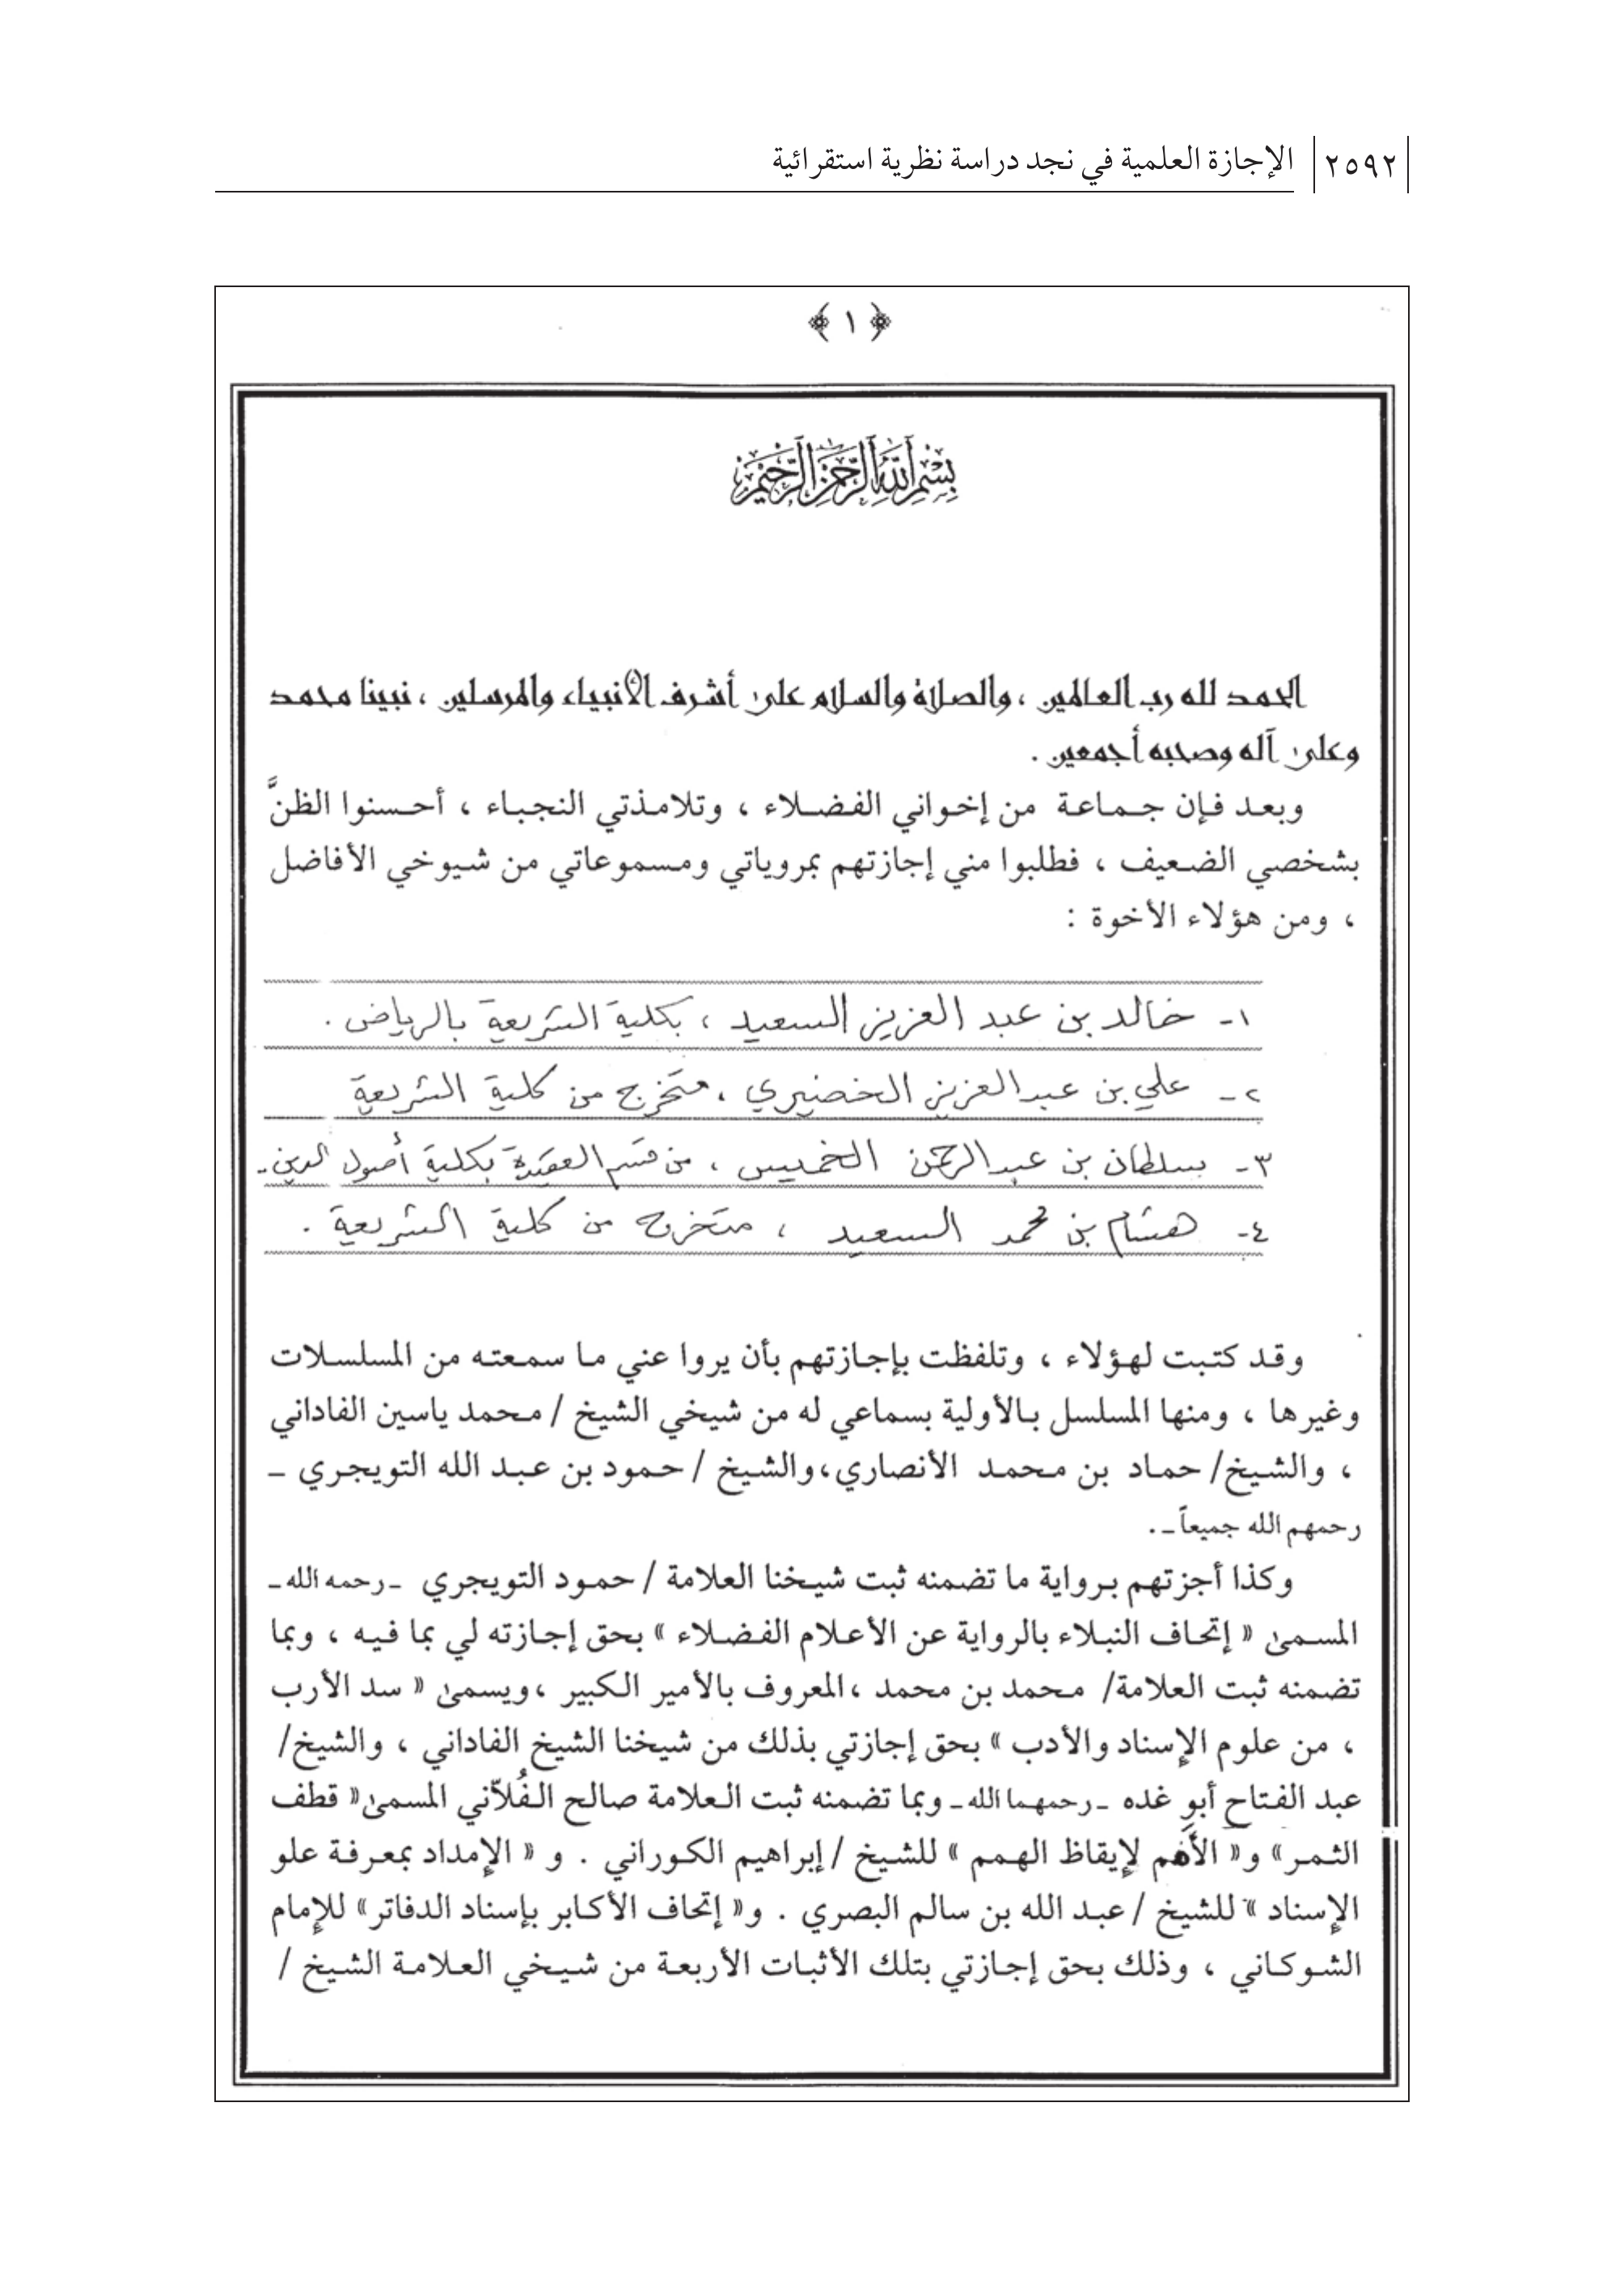 ٢٥٩٢ الإجازة العلمية في نجد دراسة نظرية استقرائية
﴿ ١ ﴾
بسم الله الرحمن الرحيم
الحمد لله رب العالمين ، والصلاة والسلام على أشرف الأنبياء والمرسلين ، نبينا محمد
وعلى آله وصحبه أجمعين .
وبعد فإن جماعة من إخواني الفضلاء ، وتلامذتي النجباء ، أحسنوا الظنَّ
بشخصي الضعيف ، فطلبوا مني إجازتهم بمروياتي ومسموعاتي من شيوخي الأفاضل
، ومن هؤلاء الأخوة :
١- خالد بن عبد العزيز السعيد ، بكلية الشريعة بالرياض .
٢- علي بن عبد العزيز الخضيري ، متخرج من كلية الشريعة
٣- سلطان بن عبد الرحمن الخميس ، من قسم العقيدة بكلية أصول الدين .
٤- هشام بن محمد السعيد ، متخرج من كلية الشريعة .
وقد كتبت لهؤلاء ، وتلفظت بإجازتهم بأن يروا عني ما سمعته من المسلسلات
وغيرها ، ومنها المسلسل بالأولية بسماعي له من شيخي الشيخ / محمد ياسين الفاداني
، والشيخ/ حماد بن محمد الأنصاري،والشيخ / حمود بن عبد الله التويجري ـ
رحمهم الله جميعاً ـ .
وكذا أجزتهم برواية ما تضمنه ثبت شيخنا العلامة / حمود التويجري ـ رحمه الله ـ
المسمى « إتحاف النبلاء بالرواية عن الأعلام الفضلاء » بحق إجازته لي بما فيه ، وبما
تضمنه ثبت العلامة/ محمد بن محمد ،المعروف بالأمير الكبير ،ويسمى « سد الأرب
، من علوم الإسناد والأدب » بحق إجازتي بذلك من شيخنا الشيخ الفاداني ، والشيخ/
عبد الفتاح أبو غده ـ رحمهما الله ـ وبما تضمنه ثبت العلامة صالح الفُلاّني المسمى« قطف
الثمر» و« الأمم لإيقاظ الهمم » للشيخ / إبراهيم الكوراني . و « الإمداد بمعرفة علو
الإسناد » للشيخ / عبد الله بن سالم البصري . و« إتحاف الأكابر بإسناد الدفاتر» للإمام
الشوكاني ، وذلك بحق إجازتي بتلك الأثبات الأربعة من شيخي العلامة الشيخ /